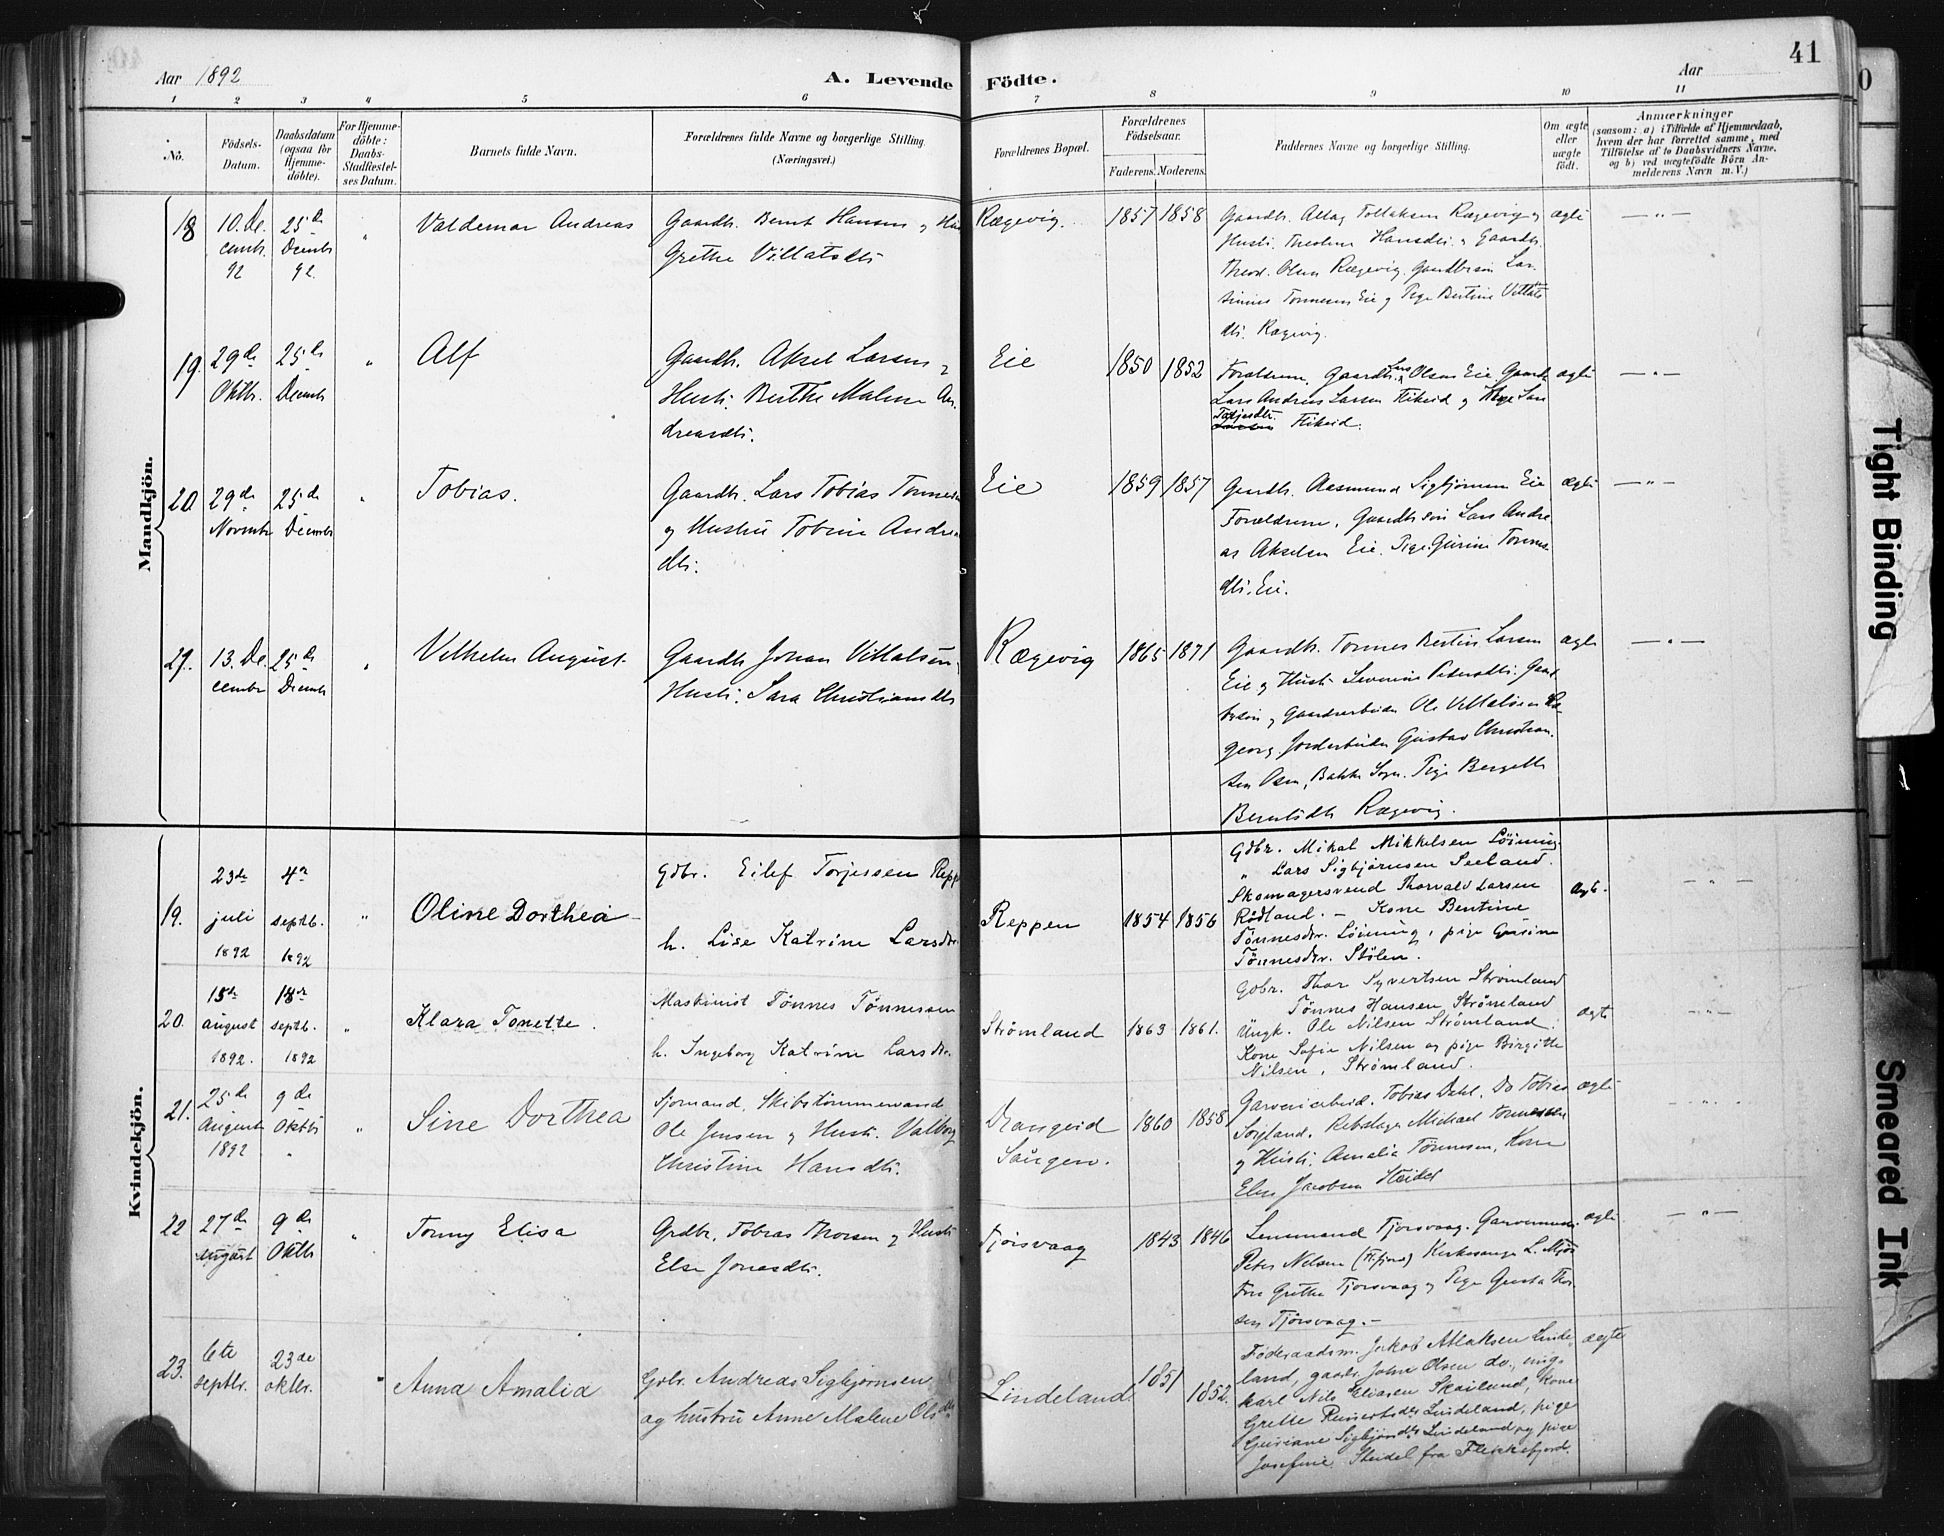 41
Aar 1892
A. Levende Fødte.
Aar
1 2 3 4 5 6 7 8 9 10 11
No.
Fødsels-Datum.
Daabsdatum (ogsaa for Hjemmedöbte).
For Hjemmedöbte: Daabs-Stadfæstelses Datum.
Barnets fulde Navn.
Forældrenes fulde Navne og borgerlige Stilling. (Næringsvei.)
Forældrenes Bopæl.
Forældrenes Födselsaar.
Faderens. Moderens.
Faddernes Navne og borgerlige Stilling.
Om ægte eller uægte födt.
Anmærkninger
(saasom: a) i Tilfælde af Hjemmedaab,
hvem der har forrettet samme, med
Tilföielse af to Daabsvidners Navne,
og b) ved uægtefödte Börn Anmelderens Navn m. V.)
Mandkjön.
18 10. December 92
25de Decembr 92.
"
Valdemar Andreas
Gaardb. Bernt Hansen og
Grethe Villatsdtr
Rægevig.
1857 1858
Gaardb. Atlag Tollaksen Rægevig og
Hustr. Hansdtr. Gaardb.
Olsen Rægevig.
Tønnesen Eie og Pige Bertine Villatsdtr. Rægevig.
ægte
— " —
19. 29de Oktbr.
25de Decembr
"
Alf
Gaardb. Aksel Larsen
Hustr. Berthe Malene Andreasdtr.
Eie
1850 1852
Forældrene, Gaardb. Lars Olsen Eie, Gaardb.
Lars Andreas Larsen og Pige
ægte
— " —
20 29de Novembr
25de Decembr
"
Tobias.
Gaardb. Lars Tobias Tønnesen
og Hustru Tobine Andreasdtr.
Eie
1859 1857
Gaardb. Aasmund Sigbjørnsen Eie
Forældrene, Gaardbsøn Lars Andreas
Akselsen Eie. Pige Gurine Tønnesdtr. Eie.
ægte
— " —
21. 13. December
25de Decembr
"
Vilhelm August.
Gaardb Johan Villatsen,
Hustr. Sara Christiansdtr
Rægevig
1865 1871
Gaardb. Tønnes Bertin Larsen
Eie og Hustr Severine Pedersdtr.
Ole Villatsen
Gustav Christiansen Osen, Bakke Sogn. Pige
Berntsdtr Rægevig.
ægte
— " —
Kvindekjön.
19. 23de juli 1892
4de septb. 1892
"
Oline Dorthea
Gdbr. Eilef Torjessen
h. Lise Katrine Larsdtr.
Reppen
1854 1856
Gdbr. Mikal Mikkelsen Löining
" Lars Sigbjörnsen Seeland.
Skomagersvend Thorvald Larsen
Rödland. – Kone Bentine
Tönnesdtr. Löining, pige Gurine
Tönnesdtr. Stölen.
ægte.
— " —
20. 15de august 1892.
18de septb. 1892
"
Klara Tonette.
Maskinist Tönnes Tönnessen
h. Ingeborg Katrine Larsdtr.
Strömland
1863 1861.
Gdbr. Thor Syvertsen Strömland
Tönnes Hansen Strömland
Ungk. Ole Nilsen Strömland.
Kone Sofie Nilsen og pige Birgitte
Nilsen, Strömland.
ægte
— " —
21. 25de August 1892
9de Oktbr "
"
Sine Dorthea
Sjomand, Skibstømmermand
Ole Jensen og Hustr. Valborg
Christine Hansdtr.
Drangeid
1860 1858
Garveriarbeid. Tobias Dahl. Do Tobias
Michael Tønnessen
og Hustr. Amalia Tönnesen, Kone
Else Jacobsen
ægte
22 27de August
9de Oktbr
"
Tonny Elisa
Grdbr. Tobias Thorsen og Hustr
Else Jonasdtr.
Tjørsvaag
1843 1846
Lensmand Tjorsvaag.
Peter Nilsen (Fl.fjord) Kirkesanger L.
Grethe Tjorsvaag og Pige Thorsen Tjørsvaag.–
ægte
— " —
23. 6te septbr.
23de oktbr.
"
Anna Amalia
Grbr. Andreas Sigbjørnsen
og hustru Anne Malene Olsdtr
Lindeland
1851
1852.
Føderaadsm. Jakob Atlaksen Lindeland,
gaardb. John Olsen do., ungkarl
Nils Eliasen Skailand, kone
Grethe Reinertsdtr Lindeland, pige
Guriane Sigbjørnsdtr Lindeland og pige
Josefine Steidel fra Flekkefjord.
ægte
Tight Binding
Smeared Ink